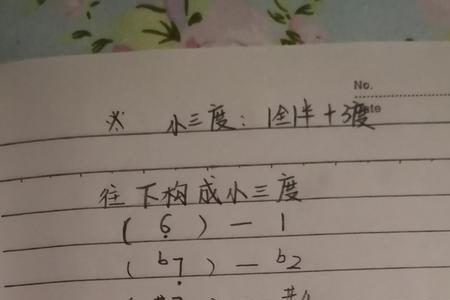 No.
Date
※ 小三度：1全1半+3度
往下构成小三度
( 6̣ ) — 1
( ᵇ7̣ ) — ᵇ2